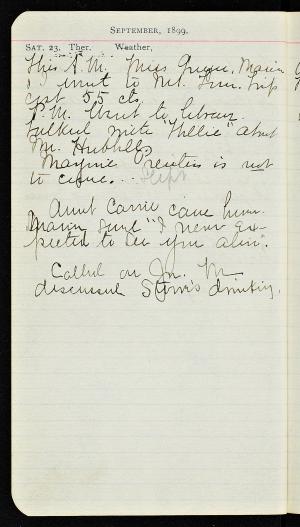 SEPTEMBER, 1899.
SAT. 23. Ther. Weather,
This A.M. Miss Marion
& I went to Mt. Trip
cost 55 cts.
P.M. Went to Library.
Talked with "Nellie" about
Mr. Hubbell.
Mayme is not
to come.
Aunt Carrie came home.
Marion said "I never ex-
pected to see you alive."
Called on Jn. M
discussed drinking.